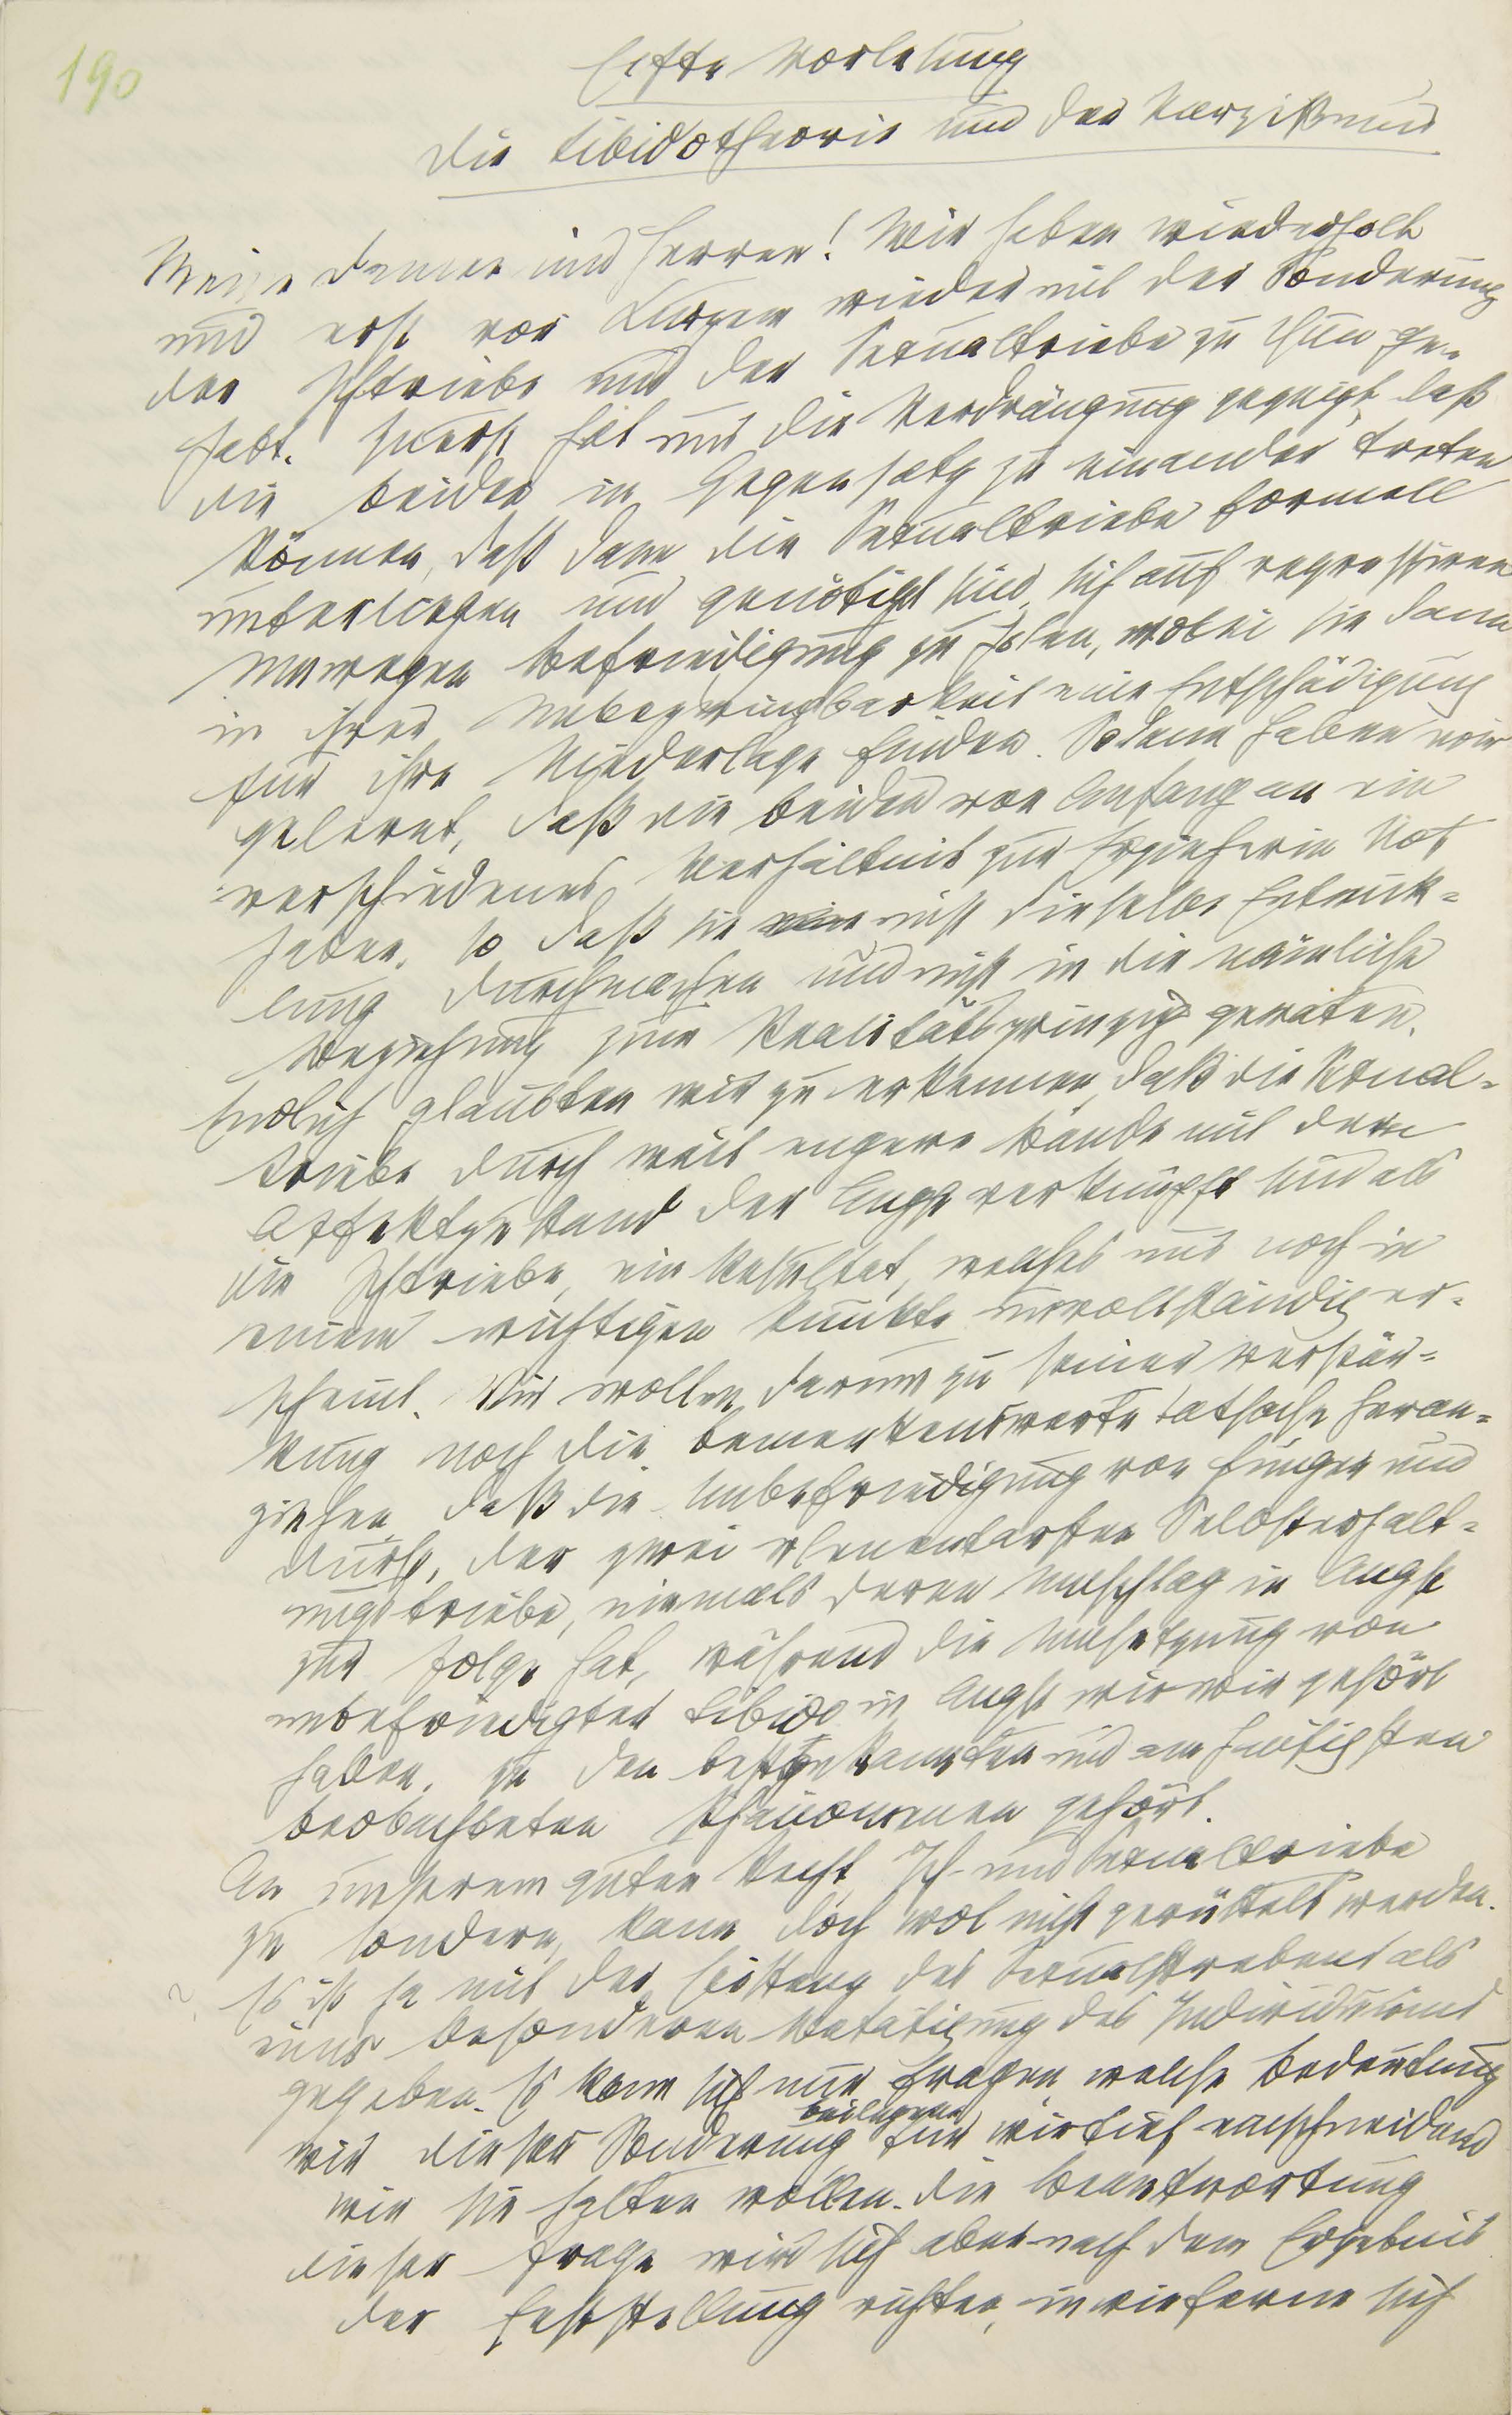 190
Elfte Vorlesung
Die Libidotheorie und der Narzißmus
Meine Damen und Herren! Wir haben wiederholt
und erst vor Kurzem wieder mit der Sonderung
der Ichtriebe und der Sexualtriebe zu thun ge-
habt. Zuerst hat uns die Verdrängung gezeigt, daß
die beiden in Gegensatz zu einander treten
können, daß dann die Sexualtriebe formell
unterliegen und genötigt sind, sich auf regressiven
Umwegen Befriedigung zu holen, wobei sie dann
in ihrer Unbezwingbarkeit eine Entschädigung
für ihre Niederlage finden. Sodann haben wir
gelernt, daß die beiden von Anfang an ein
verschiedenes Verhältnis zur Erzieherin Not
haben, so daß sie nicht dieselbe Entwick=
lung durchmachen und nicht in die nämliche
Beziehung zum Realitätsprinzip geraten.
Endlich glaubten wir zu erkennen, daß die Sexual=
triebe durch weit engere Bande mit dem
Affektzustand der Angst verknüpft sind als
die Ichtriebe, ein Resultat, welches uns noch in
einem wichtigen Punkte unvollständig er=
scheint. Wir wollen darum zu seiner Verstär=
kung noch die bemerkenswerte Tatsache heran=
ziehen, daß die Unbefriedigung von Hunger und
Durst, der zwei elementarsten Selbsterhalt=
ungstriebe, niemals deren Umschlag in Angst
zur Folge hat, während die Umsetzung von
unbefriedigter Libido in Angst, wie wir gehört
haben, zu den bestgekannten und am häufigsten
beobachteten Phänomenen gehört.
An unserem guten Recht, Ich- und Sexualtriebe
zu sondern, kann doch wol nicht gerüttelt werden.
Es ist ja mit der Existenz des Sexualstrebens als
einer besonderen Betätigung des Individuums
gegeben. Es kann sich nur fragen, welche Bedeutung
wir dieser Sonderung beilegen, für wie tief einschneidend
wir sie halten wollen. Die Beantwortung
dieser Frage wird sich aber nach dem Ergebnis
der Feststellung richten, inwieferne sich